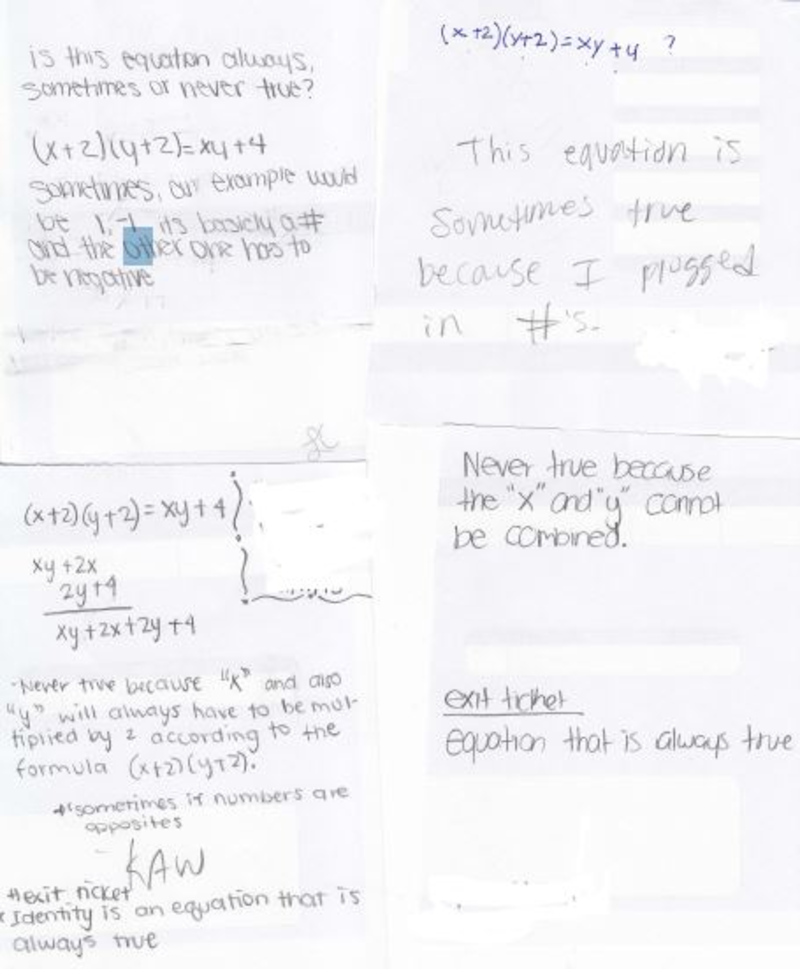 is this equation always,
sometimes or never true?
(x+2)(y+2)=xy+4
sometimes, our example would
be 1,-1 its basicly a #
and the other one has to
be negative
(x+2)(y+2)=xy+4 ?
This equation is
Sometimes true
because I plugged
in #'s.
(x+2)(y+2)=xy+4
xy+2x
2y+4
xy+2x+2y+4
-Never true because "x" and also
"y" will always have to be mul-
tiplied by 2 according to the
formula (x+2)(y+2).
*sometimes if numbers are
opposites
KAW
#exit ticket
Identity is an equation that is
always true
Never true because
the "x" and "y" cannot
be combined.
exit ticket
equation that is always true